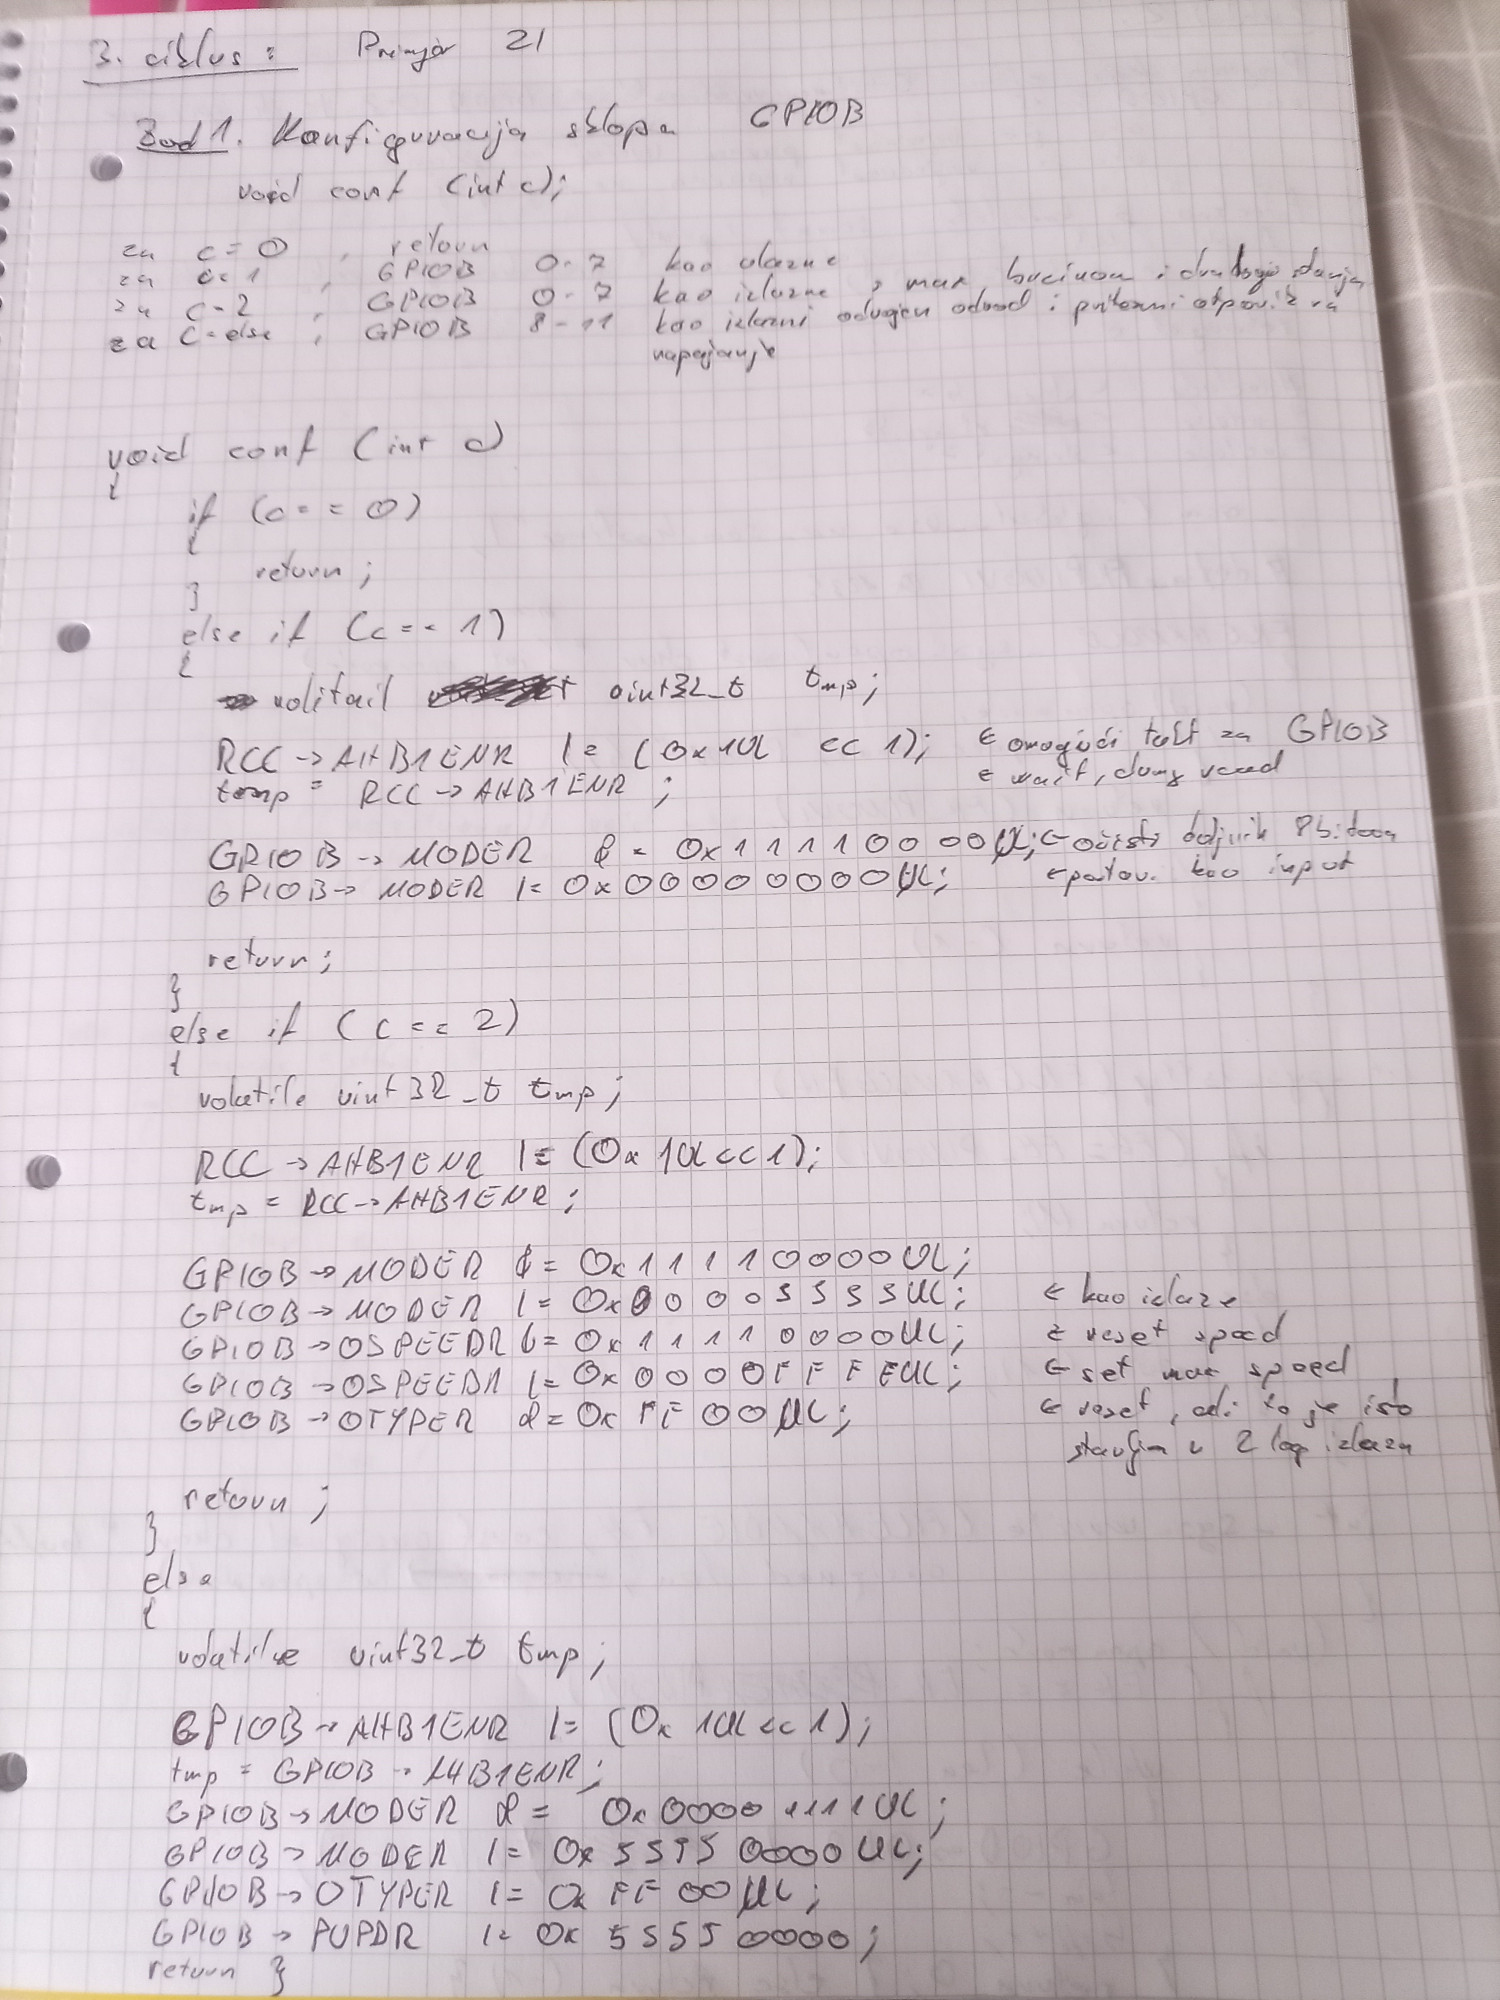 3. ciklus: Primjer 21
Zad 1. Konfiguracija sklopa GPIOB
void conf (int c);
za c=0, return
za c=1, GPIOB 0-7 kao ulazne
za c=2, GPIOB 0-7 kao izlazne, max brzinom i dva stanja
za c=else, GPIOB 8-11 kao izlazni odvojen odvod i pritezni otpornik za
napajanje
void conf (int c)
{
if (c == 0)
{
return;
}
else if (c == 1)
{
volitail uint32_t tmp;
RCC->AHB1ENR |= (0x1UL << 1); ← omogući takt za GPIOB
temp = RCC->AHB1ENR; ← wait, dumy read
GPIOB->MODER &= 0x11110000UL; ← očisti doljnih 8 bitova
GPIOB->MODER |= 0x00000000UL; ← postav. kao input
return;
}
else if (c == 2)
{
volatile uint32_t tmp;
RCC->AHB1ENR |= (0x1UL<<1);
tmp = RCC->AHB1ENR;
GPIOB->MODER &= 0x11110000UL;
GPIOB->MODER |= 0x00005555UL; ← kao izlaze
GPIOB->OSPEEDR &= 0x11110000UL; ← reset speed
GPIOB->OSPEEDR |= 0x0000FFFFUL; ← set max speed
GPIOB->OTYPER &= 0xFF00UL; ← reset, ali to je isto
stavljm u 2 log izlaza
return;
}
else
{
volatilve uint32_t tmp;
GPIOB->AHB1ENR |= (0x1UL<<1);
tmp = GPIOB->AHB1ENR;
GPIOB->MODER &= 0x00001111UL;
GPIOB->MODER |= 0x55550000UL;
GPIOB->OTYPER |= 0xFF00UL;
GPIOB->PUPDR |= 0x55550000;
return }